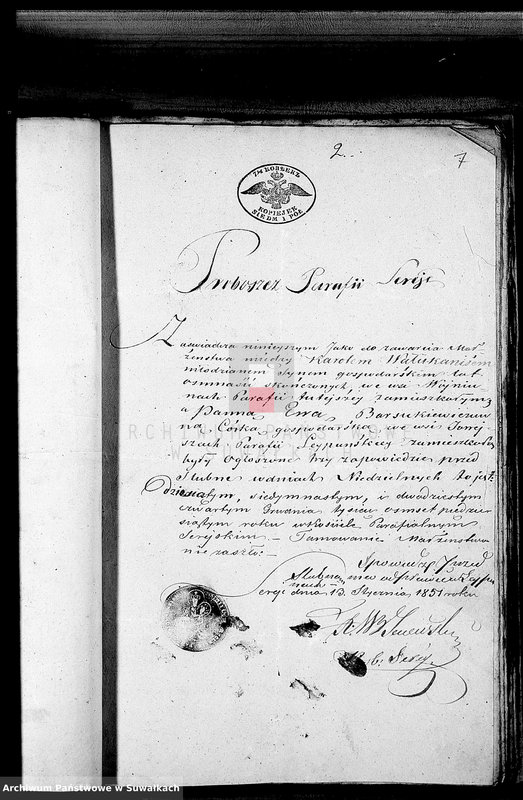 2.
7
7½ КОПѢЕКЪ
KOPIEJEK
SIEDM I PÓŁ
Proboszcz Parafii Sereje
Zaświadcza niniejszym Jako do zawarcia Mał-
żenstwa między Karolem Waliskanisem
młodzianem Synem gospodarskim lat
osmnaście skończonych, we wsi
nach Parafii tutejszey zamieszkałym
a Panną Ewą Barsukiewiczow
ną Córką gospodarską we wsi
szach Parafii Leypuńskiey zamieszkałą
były Ogłoszone trzy zapowiedzie przed
Slubne wdniach Niedzielnych to jest:
dziesiątym, siedymnastym, i dwudziestym
czwartym Grudnia tysiąc osmset piędzie-
siątym roku w Kościele Parafialnym
Serejskim — Tamowanie Małżenstwa
nie zaszło. —
Sereje dnia 13 Stycznia 1851 roku
Archiwum Państwowe w Suwałkach